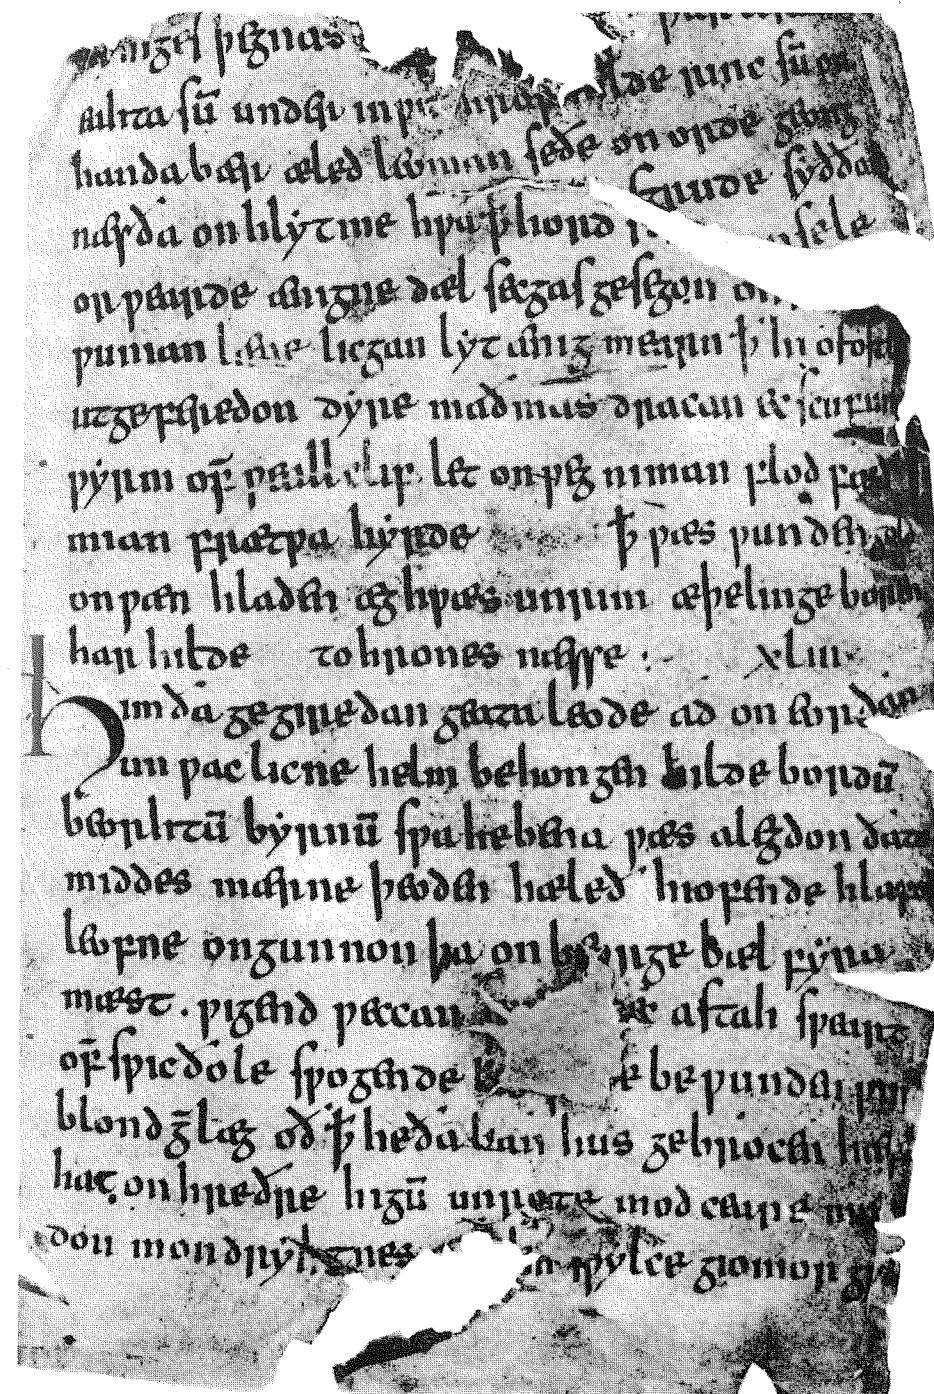 ninges þegnas
eahta sū under inƿit hrof rinc sū on
handa bær æled leoman se ðe on orde geong
næs ða on hlytme hƿa ꝥ hord strude syððan
orƿearde ænigne dæl secgas gesegon on sele
ƿunian læne licgan lyt ænig mearn ꝥ hi ofost
ut geferedon dyre maðmas dracan ec scufun
ƿyrm of̄ ƿeall clif let on ƿeg niman flod fæð
mian frætƿa hyrde ꝥ ƿæs ƿunden gold
on ƿæn hladen æghƿæs unrim æþelinge boren
har hilde to hrones næsse : xliii
him ða gegiredan geata leode ad on eorðan
un ƿaclicne helm behongen hilde bordū
beorhtū byrnū sƿa he bena ƿæs alegdon ða to
middes mærne þeoden hæleð hiofende hlaf
leofne ongunnon þa on beorge bæl fyra
mæst . ƿigend ƿeccan ec astah sƿeart
of̄ sƿicðole sƿogende e beƿunden
blond ḡlæg oð ꝥ he ða ban hus gebrocen hæf
hat on hreðre higū unrote mod ceare mæ
don mondryhtnes sƿylce giomor gy